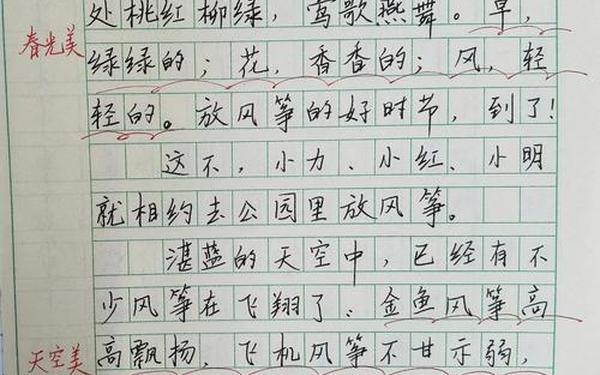 处桃红柳绿，莺歌燕舞。草，
春光美
绿绿的；花，香香的；风，轻
轻的。放风筝的好时节，到了！
这不，小力、小红、小明
就相约去公园里放风筝。
湛蓝的天空中，已经有不
少风筝在飞翔了：金鱼风筝高
天空美
高飘扬，飞机风筝不甘示弱，